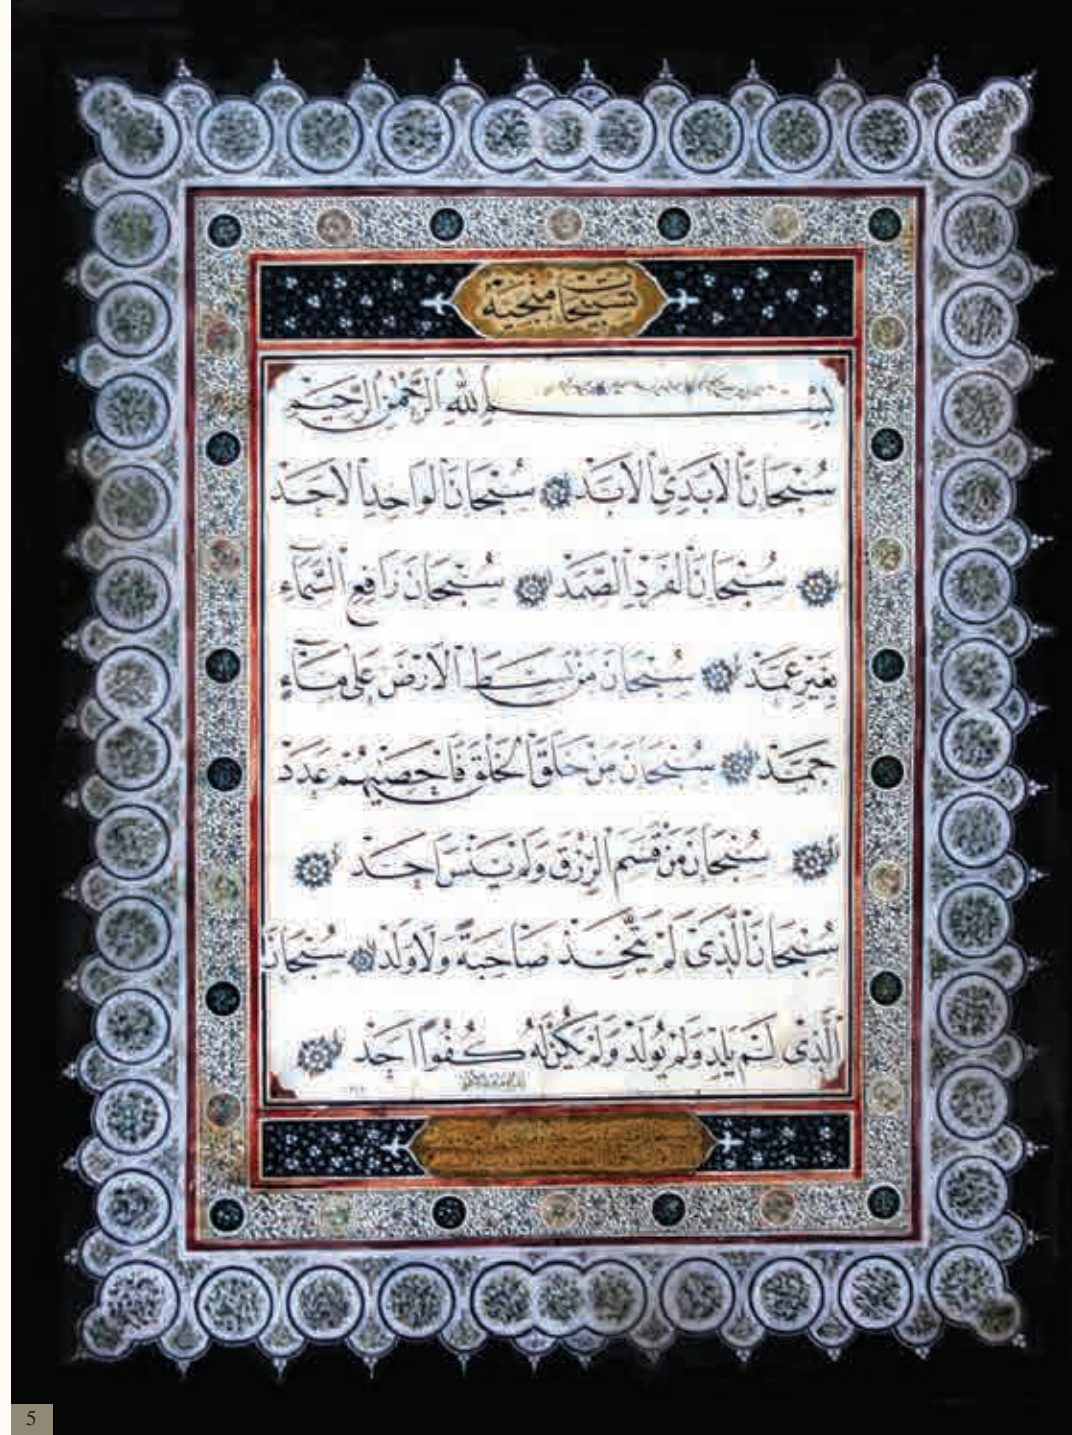 تسبيحات منجية
بسم الله الرحمن الرحيم
سُبْحَانَ الْاَبَدِيِّ الْاَبَدْ سُبْحَانَ الْوَاحِدِ الْاَحَدْ
سُبْحَانَ الْفَرْدِ الصَّمَدْ سُبْحَانَ رَافِعِ السَّمَاءِ
بِغَيْرِ عَمَدْ سُبْحَانَ مَنْ بَسَطَ الْاَرْضَ عَلٰى مَاءٍ
جَمَدْ سُبْحَانَ مَنْ خَلَقَ الْخَلْقَ فَاَحْصٰيهُمْ عَدَدْ
سُبْحَانَ مَنْ قَسَمَ الرِّزْقَ وَلَمْ يَنْسَ اَحَدْ
سُبْحَانَ الَّذِى لَمْ يَتَّخِذْ صَاحِبَةً وَلَا وَلَدْ سُبْحَانَ
الَّذِى لَمْ يَلِدْ وَلَمْ يُولَدْ وَلَمْ يَكُنْ لَهُ كُفُوًا اَحَدْ
5